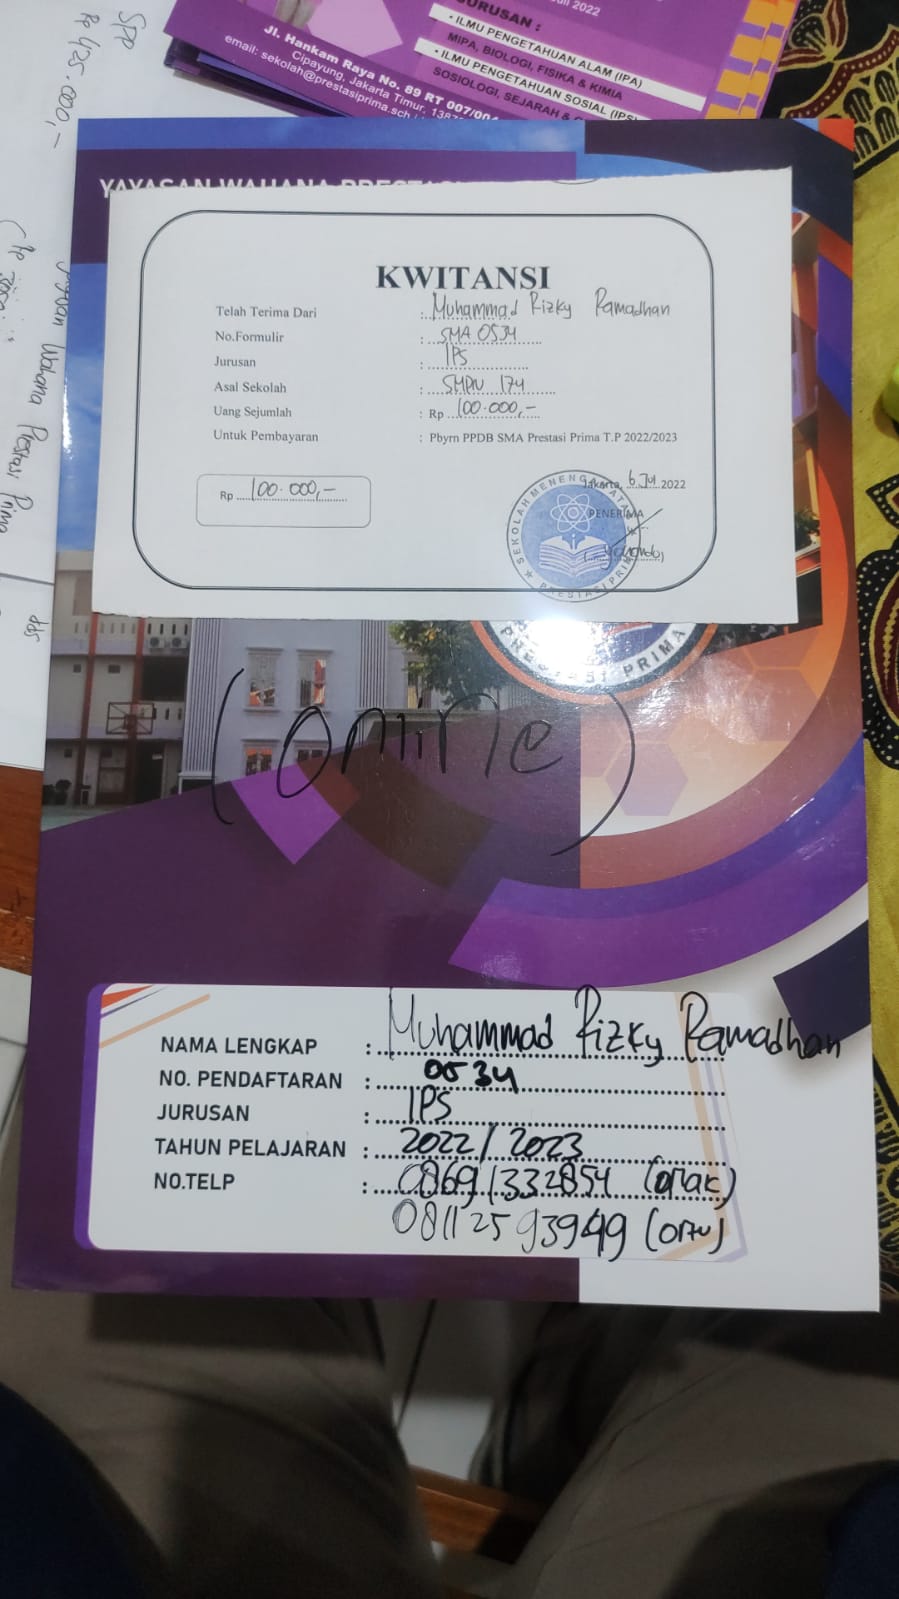 Juli 2022
JURUSAN :
• ILMU PENGETAHUAN ALAM (IPA)
MIPA, BIOLOGI, FISIKA & KIMIA
• ILMU PENGETAHUAN SOSIAL (IPS)
SOSIOLOGI, SEJARAH &
Jl. Hankam Raya No. 89 RT 007/004
Cipayung, Jakarta Timur,
email: sekolah@prestasiprima.sch
SPP
Rp 425.000,-
Wahana Prestasi Prima
YAYASAN WAHANA PRESTASI
KWITANSI
Telah Terima Dari : Muhammad Rizky Ramadhan
No.Formulir : SMA 0534
Jurusan : IPS
Asal Sekolah : SMPN 174
Uang Sejumlah : Rp 100.000,-
Untuk Pembayaran : Pbyrn PPDB SMA Prestasi Prima T.P 2022/2023
Rp 100.000,-
Jakarta, 6 Jul 2022
PENERIMA
SEKOLAH MENENGAH ATAS
PRESTASI PRIMA
PRESTASI PRIMA
(online)
NAMA LENGKAP : Muhammad Rizky Ramadhan
NO. PENDAFTARAN : 0534
JURUSAN : IPS
TAHUN PELAJARAN : 2022/2023
NO.TELP : 08691332854 (anak)
08112593949 (ortu)